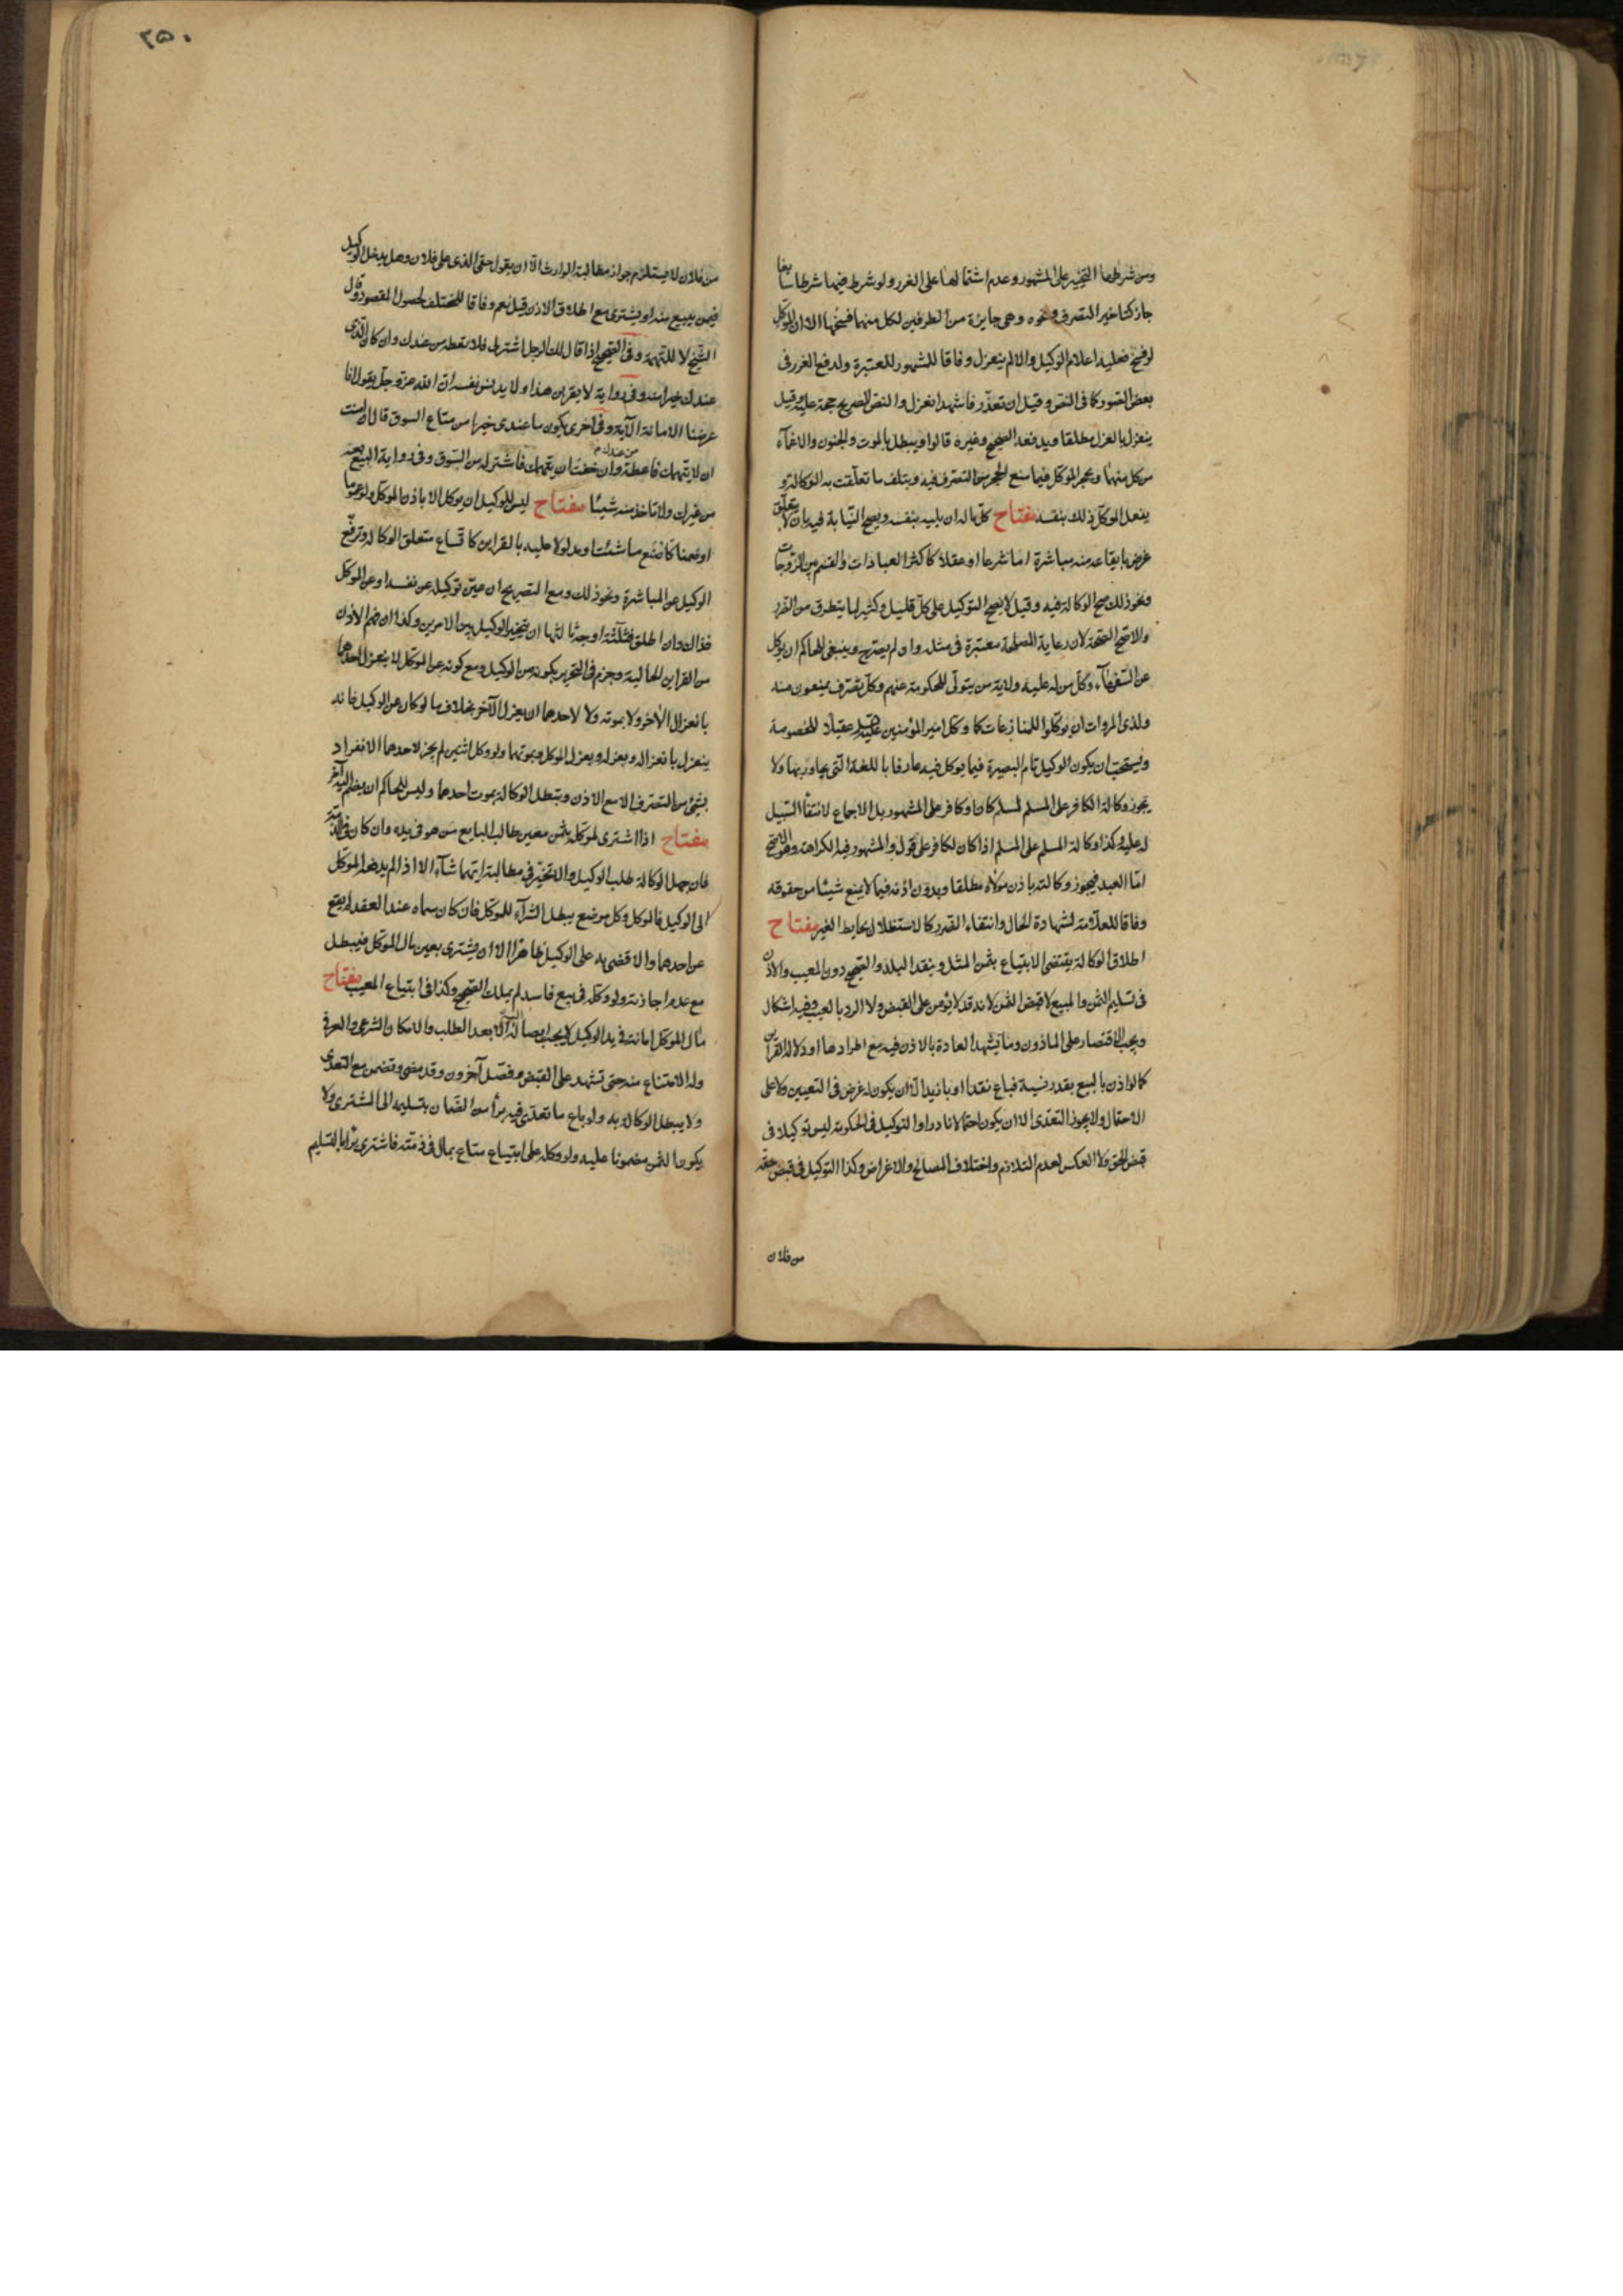 ومن شرطها التنجيز على المشهور وعدم اشتمالها على الغرر ولو شرط فيها شرطا سايغا
جاز كتاخير التصرف ونحوه وهى جايزة من الطرفين لكل منهما فسخها الا ان الموكل
لو فسخ فعليه اعلام الوكيل والا لم ينعزل وفاقا للمشهور للمعتبرة ولدفع الغرر فى
بعض الصور كما فى النص وقيل ان تعذر فاشهد انعزل والنص الصريح حجة عليه وقيل
ينعزل بالعزل مطلقا ويدفعه الصحيح وغيره قالوا ويبطل بالموت والجنون والاغماء
من كل منهما وبحجر الموكل فيما منع الحجر من التصرف فيه وبتلف ما تعلقت به الوكالة و
بفعل الموكل ذلك بنفسه مفتاح كل ما له ان يليه بنفسه ويصح النيابة فيه بان لا يتعلق
غرض بايقاعه منه مباشرة اما شرعا او عقلا كاكثر العبادات والقسم بين الزوجات
ونحو ذلك صح الوكالة فيه وقيل لا يصح التوكيل على كل قليل وكثير لما يتطرق من الغرر
والاصح الصحة لان رعاية المصلحة معتبرة فى مثله وان لم يصرح وينبغى للحاكم ان يوكل
عن السفهاء وكل من له عليه ولاية من يتولى الحكومة عنهم وكل تصرف يمنعون منه
ولذى المروات ان يوكلوا للمنازعات كما وكل امير المؤمنين عليه عقيلا للخصومة
ويستحب ان يكون الوكيل تام البصيرة فيما يوكل فيه عارفا باللغة التى يحاور بها ولا
يجوز وكالة الكافر على المسلم لمسلم كان او كافر على المشهور بل الاجماع لانتفاء السبيل
له عليه وكذا وكالة المسلم على المسلم اذا كان لكافر على قول والمشهور فيه الكراهة وهو الاصح
اما العبد فيجوز وكالته باذن مولاه مطلقا وبدون اذنه فيما لا يمنع شيئا من حقوقه
وفاقا للعلامة لشهادة الحال وانتفاء الضرر كالاستظلال بحايط الغير مفتاح
اطلاق الوكالة يقتضى الابتياع بثمن المثل وبنقد البلد والصحيح دون المعيب والاذن
فى تسليم الثمن والمبيع لا قبض الثمن لانه قد لا يؤمن على القبض ولا الرد بالعيب وفيه اشكال
ويجب الاقتصار على الماذون وما يشهد العادة بالاذن فيه مع اطرادها او دلالة القراين
كما لو اذن بالبيع بقدر نسية فباع نقدا او بازيد الا ان يكون له غرض فى التعيين ولا على
الاحتمال ولا يجوز التعدى الا ان يكون احتمالا نادرا والتوكيل فى الحكومة ليس توكيلا فى
قبض الحق ولا العكس لعدم التلازم واختلاف المصالح والاغراض وكذا التوكيل فى قبض حقه
من فلان
٢٥٠
من فلان لا يستلزم جواز مطالبة الوارث الا ان يقول حقى الذى على فلان وهل يدخل الوكيل
فيمن يبيع منه او يشترى مع اطلاق الاذن قيل نعم وفاقا للمختلف لحصول المقصود وقال
الشيخ لا للتهمة وفى الصحيح اذا قال لك الرجل اشتر لى فلا تعطه من عندك وان كان الذى
عندك خيرا منه وفى رواية لا يقربن هذا ولا يدنس نفسه ان الله عز وجل يقول انا
عرضنا الامانة الآية وفى اخرى يكون ما عندى خيرا من متاع السوق قال ان امنت
ان لا يتهمك فاعطه من عندك وان خفت ان يتهمك فاشتر له من السوق وفى رواية البيع بعه
من غيرك ولا تاخذ منه شيئا مفتاح ليس للوكيل ان يوكل الا باذن الموكل ولو عموما
او ضمنا كاصنع ما شئت او مدلولا عليه بالقراين كاتساع متعلق الوكالة وترفع
الوكيل عن المباشرة ونحو ذلك ومع التصريح ان عين توكيله عن نفسه او عن الموكل
فذاك وان اطلق فثلثة اوجه ثالثها ان يتخير الوكيل بين الامرين وكذا ان فهم الاذن
من القراين الحالية وجزم فى التحرير بكونه من الوكيل ومع كونه عن الموكل لا ينعزل احدهما
بانعزال الآخر ولا بموته ولا لاحدهما ان يعزل الآخر بخلاف ما لو كان عن الوكيل فانه
ينعزل بانعزاله وبعزله وبعزل الموكل وبموتهما ولو وكل اثنين لم يجز لاحدهما الانفراد
بشئ من التصرف الا مع الاذن وتبطل الوكالة بموت احدهما وليس للحاكم ان يضم اليه آخر
مفتاح اذا اشترى لموكله بثمن معين طالب البايع من هو فى يده وان كان فى الذمة
فان جهل الوكالة طلب الوكيل والا تخير فى مطالبة ايهما شآء الا اذا لم يدفعه الموكل
الى الوكيل فالموكل وكل موضع يبطل الشرآء للموكل فان كان سماه عند العقد لم يقع
عن احدهما والا قضى به على الوكيل ظاهرا الا ان يشترى بعين مال الموكل فيبطل
مع عدم اجازته ولو وكله فى بيع فاسد لم يملك الصحيح وكذا فى ابتياع المعيب مفتاح
مال الموكل امانة فى يد الوكيل لا يجب ايصاله اليه الا بعد الطلب والامكان الشرعى والعرفى
وله الامتناع منه حتى تشهد على القبض وفصل آخرون وقد مضى وتضمن مع التعدى
ولا يبطل الوكالة به ولو باع ما تعدى فيه برأ من الضمان بتسليمه الى المشترى ولا
يكون الثمن مضمونا عليه ولو وكله على ابتياع متاع بمال فى ذمته فاشترى برأ بالتسليم